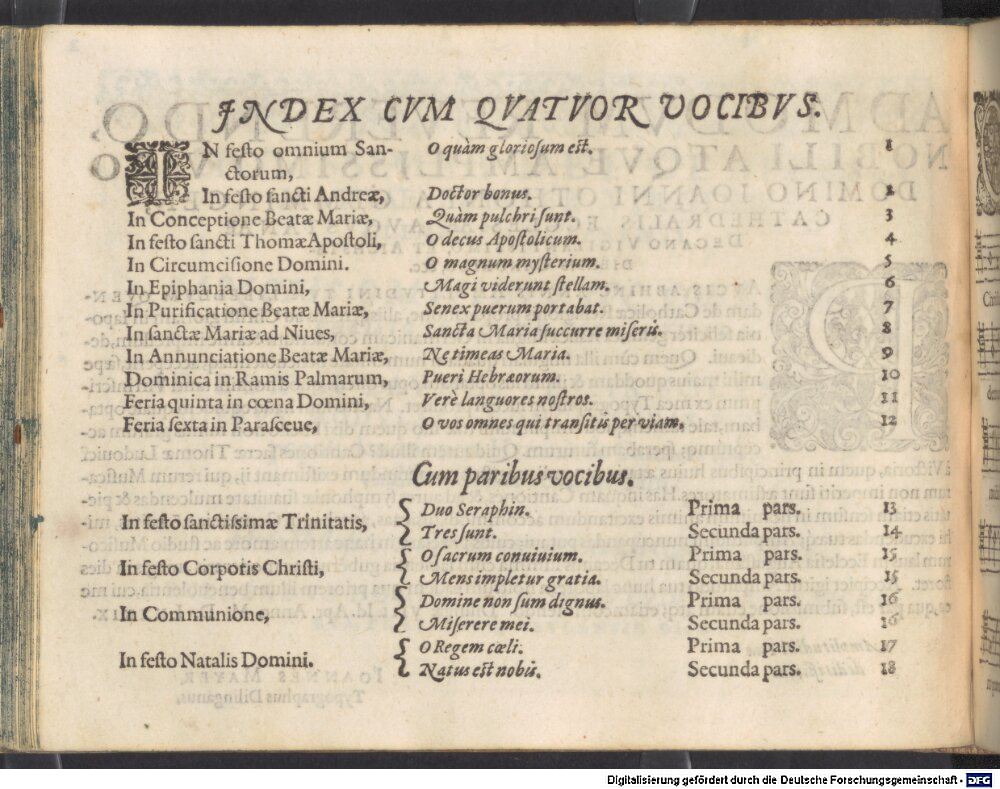 INDEX CVM QVATVOR VOCIBVS.
IN festo omnium San- O quàm gloriosum est. 1
ctorum,
In festo sancti Andreæ, Doctor bonus. 2
In Conceptione Beatæ Mariæ, Quàm pulchri sunt. 3
In festo sancti Thomæ Apostoli, O decus Apostolicum. 4
In Circumcisione Domini. O magnum mysterium. 5
In Epiphania Domini, Magi viderunt stellam. 6
In Purificatione Beatæ Mariæ, Senex puerum portabat. 7
In sanctæ Mariæ ad Niues, Sancta Maria succurre miseris. 8
In Annunciatione Beatæ Mariæ, Ne timeas Maria. 9
Dominica in Ramis Palmarum, Pueri Hebræorum. 10
Feria quinta in cœna Domini, Verè languores nostros. 11
Feria sexta in Parasceue, O vos omnes qui transitis per viam. 12
Cum paribus vocibus.
In festo sanctissimæ Trinitatis, Duo Seraphin. Prima pars. 13
Tres sunt. Secunda pars. 14
In festo Corpotis Christi, O sacrum conuiuium. Prima pars. 15
Mens impletur gratia. Secunda pars. 15
In Communione, Domine non sum dignus. Prima pars. 16
Miserere mei. Secunda pars. 16
In festo Natalis Domini. O Regem cœli. Prima pars. 17
Natus est nobis. Secunda pars. 18
Digitalisierung gefördert durch die Deutsche Forschungsgemeinschaft - DFG